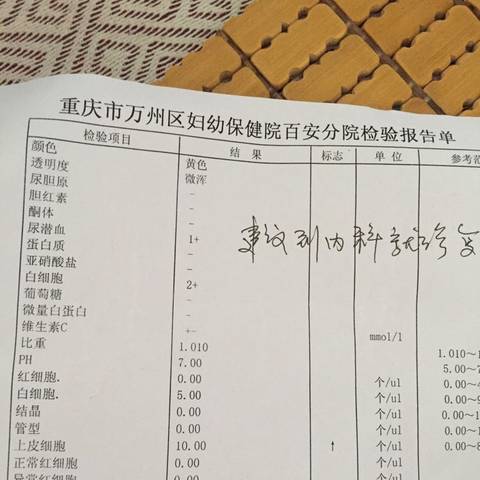 重庆市万州区妇幼保健院百安分院检验报告单
检验项目 结 果 标志 单 位 参考范
颜色 黄色
透明度 微浑
尿胆原 -
胆红素 -
酮体 -
尿潜血 1+
建议到内科就诊
蛋白质 -
亚硝酸盐 -
白细胞 2+
葡萄糖 -
微量白蛋白 -
维生素C +- mmol/l
比重 1.010 1.010~
PH 7.00 5.00~
红细胞. 0.00 个/ul 0.00~
白细胞. 5.00 个/ul 0.00~
结晶 0.00 个/ul 0.00~
管型 0.00 个/ul 0.00~
上皮细胞 10.00 ↑ 个/ul 0.00~
正常红细胞 0.00 个/ul
异常红细胞 0.00 个/ul